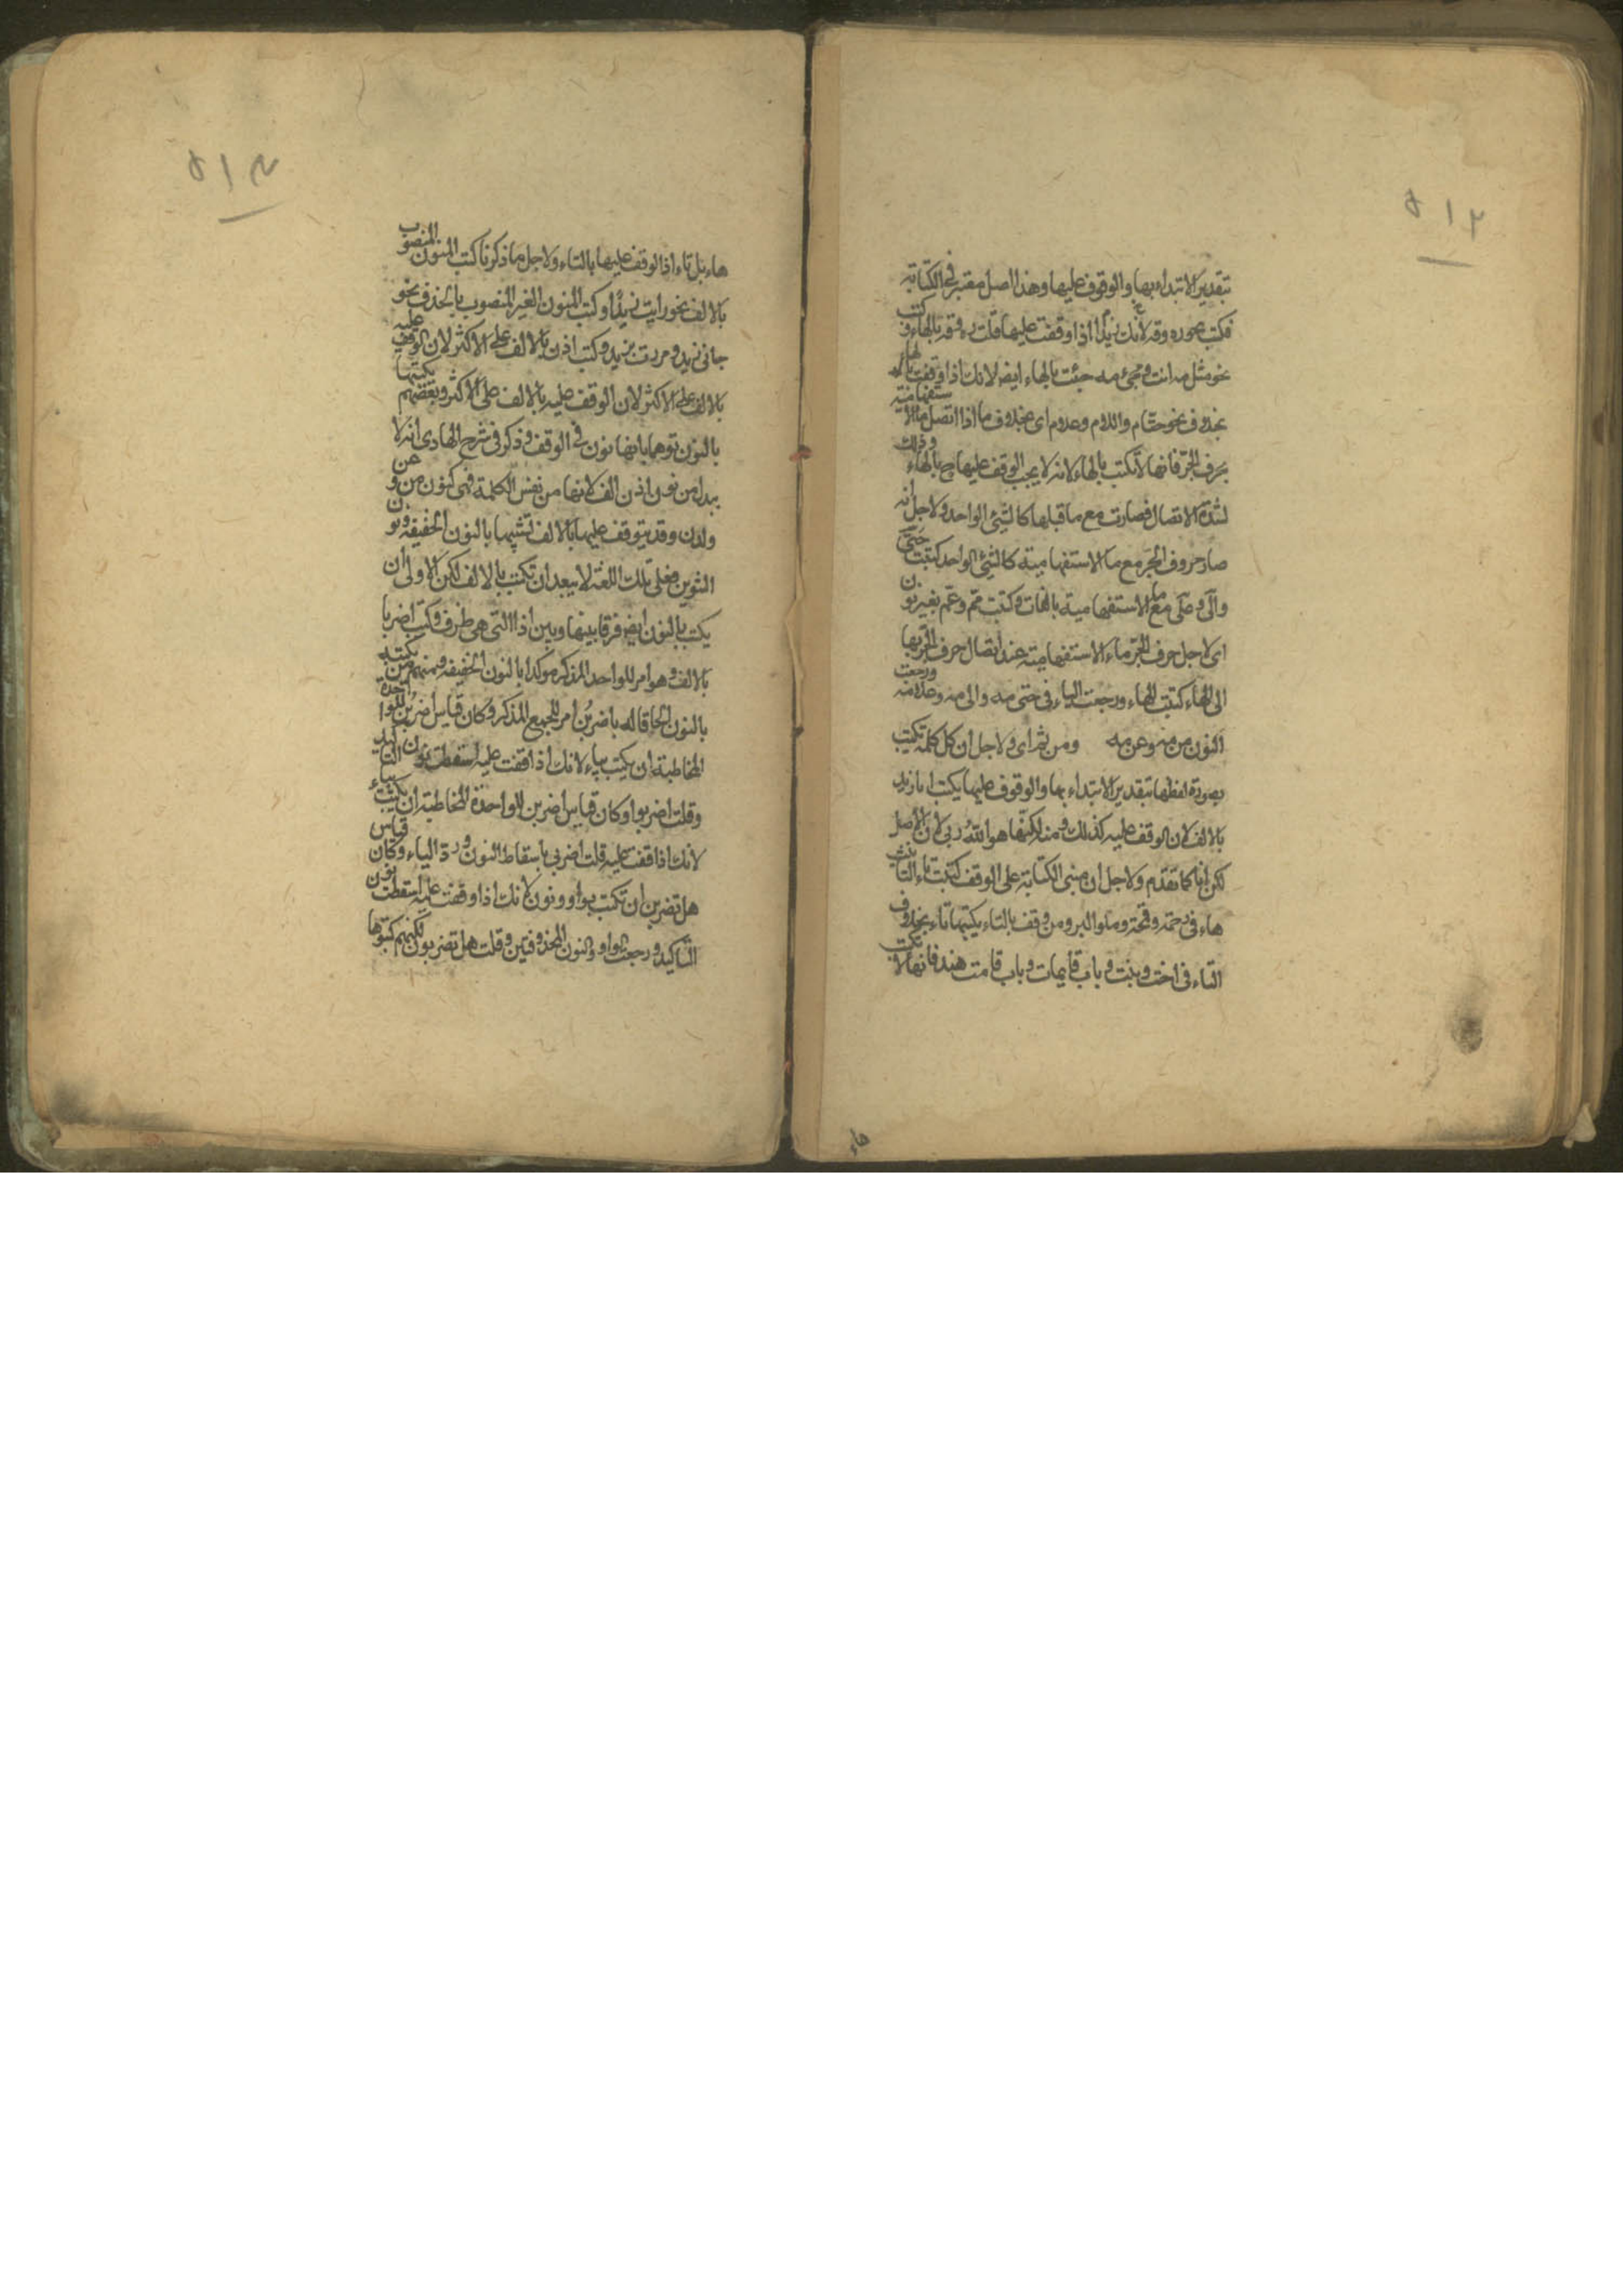 ٥١٣
بتقدير الابتداء بها والوقوف عليها وهذا اصل معتبر في الكتابة
فكتب نحو ره وقه لانك اذا وقفت عليها قلت ره وقه بالهاء وكتب
نحو مثل مه انت ومجئ مه جئت بالهاء ايضا لانك اذا وقفت بالهاء
بخلاف نحو حتام والام وعلام اى بخلاف ما اذا اتصل ما الاستفهامية
بحرف الجر فانها لا تكتب بالهاء لانه لا يجب الوقف عليها ح بالهاء وذلك
لشدة الاتصال فصارت مع ما قبلها كالشئ الواحد ولاجل انه
صار حروف الجر مع ما الاستفهامية كالشئ الواحد كتبت حتى
والى وعلى مع ما الاستفهامية بالفات وكتبت مم وعم بغير نون
اى لاجل حرف الجر ماء الاستفهامية عند اتصال حرف الجر بها
الى الهاء كتبت الهاء ورجعت الياء فى حتى مه والى مه وعلى مه ورجعت
النون من مه وعن مه ومن ثم اى ولاجل ان كل كلمة تكتب
بصورة لفظها بتقدير الابتداء بها والوقوف عليها يكتب انا زيد
بالالف لان الوقف عليه كذلك ومنه لكنا هو الله ربى لان الاصل
لكن انا كما تقدم ولاجل ان مبنى الكتابة على الوقف كتبت تاء التأنيث
هاء فى رحمة وقمحة ومن وقف بالتاء يكتبها تاء بخلاف
التاء فى اخت وبنت وباب قايمات وباب قامت هند فانها لا تكتب
هاء
٥١٤
هاء بل تاء اذا الوقف عليها بالتاء ولاجل ما ذكرنا كتب المنون المنصوب
بالالف نحو رايت زيدا وكتب المنون الغير المنصوب بالحذف نحو
جانى زيد ومررت بزيد وكتب اذن بالالف على الاكثر لان الوقف عليه
بالالف على الاكثر لان الوقف عليه بالالف على الاكثر وبعضهم يكتبها
بالنون توهما بانها نون فى الوقف وذكر فى شرح الهادى انه لا
يبدل من نون اذن الف لانها من نفس الكلمة فهى كنون من وعن
ولدن وقد يتوقف عليها بالالف تشبيها بالنون الخفيفة ونون
التنوين فعلى تلك اللغة لا يبعد ان تكتب بالالف لكن الاولى ان
يكتب بالنون ايضا فرقا بينها وبين اذا التى هى ظرف وكتب اضربا
بالالف وهو امر للواحد المذكر موكدا بالنون الخفيفة ومنهم من يكتبه
بالنون الحاقا له باضربن امر للجمع المذكر وكان قياس اضربن للواحدة
المخاطبة ان يكتب بياء لانك اذا قفت عليه اسقطت نون التاكيد
وقلت اضربوا وكان قياس اضربن للواحدة المخاطبة ان يكتب بياء
لانك اذا قفت عليه قلت اضربى باسقاط النون ورد الياء وكان قياس
هل تضربن ان تكتب بواو ونون لانك اذا وقفت عليه اسقطت نون
التاكيد ورجعت الواو والنون المحذوفتين وقلت هل تضربون لكنهم كتبوها